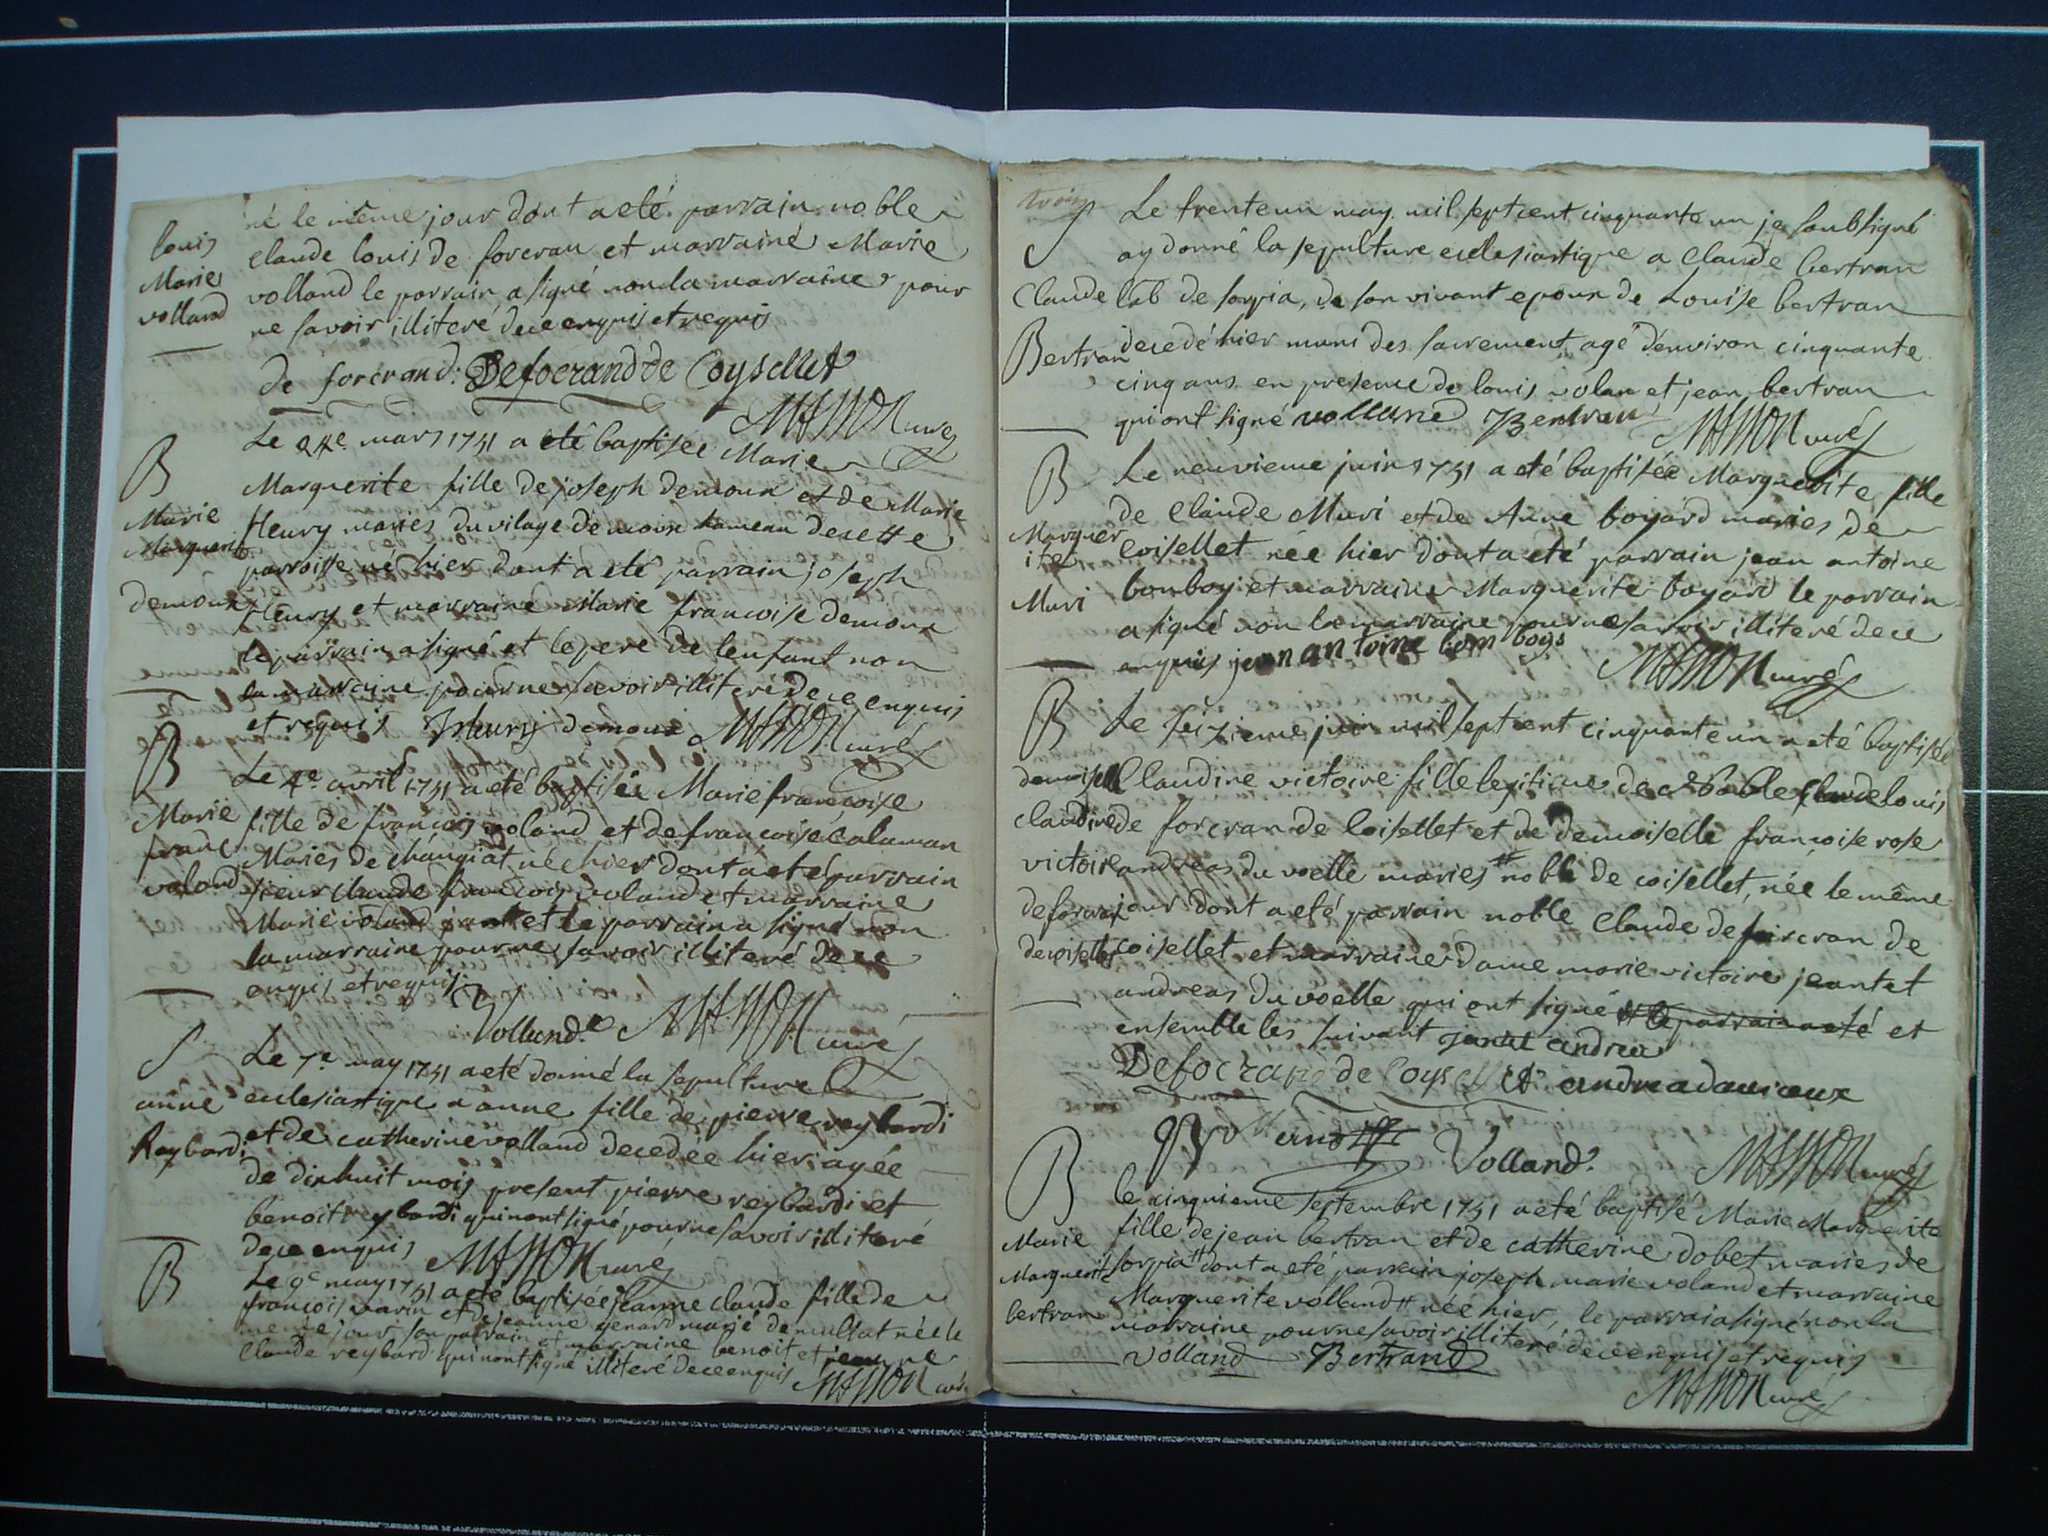 né le même jour dont a eté parrain noble
louis
claude louis de forcran et marraine Marie
Marie
volland le parrain a signé non la marraine pour
volland
ne savoir illiteré de ce enquis et requis
de forcrand. Deforcrand de Coysellet
MASSON curé
B
Le 24e mars 1751 a eté baptisée Marie
Marguerite fille de joseph demoux et de Marie
Marie
fleury mariés du vilage de moux hameau de cette
Marguerite
parroisse né hier dont a eté parrain joseph
demoux
fleury et marraine Marie francoise demoux
le parrain a signé et le pere de lenfant non
la marraine pour ne savoir illiteré de ce enquis
et requis fleury demoux MASSON curé
B
Le 4e avril 1751 a eté baptisée Marie francoise
Marie
fille de francois voland et de francoise calaman
franc
Mariés de changiat née hier dont a eté parrain
voland
sieur claude francois voland et marraine
Marie voland et le parrain a signé non
la marraine pour ne savoir illiteré de ce
enquis et requis
Volland MASSON curé
S
Le 7e may 1751 a eté donné la sepulture
anne
eclesiastique a anne fille de pierre reybardi
Raybardi
et de catherine volland decedée hier agée
de dix huit mois present pierre reybardi et
benoit reybardi qui nont signé pour ne savoir illiteré
de ce enquis MASSON curé
B
Le 9e may 1751 a eté baptisée jeanne claude fille de
francois varin et de jeanne genard marié de mussat née le
meme jour son parrain et marraine benoit et jeanne
claude reybard qui nont signé illiteré de ce enquis MASSON curé
trois
S
Le trente un may mil sept cent cinquante un je soubsigné
ay donné la sepulture eclesiastique a Claude bertran
Claude
lab de sorpia, de son vivant epoux de Louise bertran
Bertran
decedé hier muni des sacrement agé denviron cinquante
cinq ans en presence de louis volan et jean bertran
qui ont signé volland Bertran MASSON curé
B
Le neuvieme juin 1751 a eté baptisée Marguerite fille
de Claude Muri et de Anne boyard mariés de
Marguer
ite
coisellet née hier dont a eté parrain jean antoine
Muri
bonboy et marraine Marguerite boyard le parrain
a signé non la marraine pour ne savoir illiteré de ce
enquis jean antoine bom boys
MASSON curé
B
Le seizieme juin mil sept cent cinquante un a eté baptisée
demoiselle
Claudine victoire fille legitime de Noble claude louis
claudine
de forcran de Coisellet et de demoiselle francoise rose
victoire
andreas du voelle mariés # noble de coisellet, née le même
de forcran
jour dont a eté parrain noble Claude de forcran de
de coisellet
coisellet et marraine Dame marie victoire jeantet
andreas du voelle qui ont signé et
ensemble les suivant
Deforcrand de Coysellet
Volland MASSON curé
B
le cinquieme septembre 1751 a eté baptisé Marie Marguerite
fille de jean bertran et de catherine dobet mariés de
Marie
sorpia # dont a eté parrain joseph marie voland et marraine
Marguerite
Marguerite volland # née hier, le parrain a signé non la
bertran
marraine pour ne savoir illiteré de ce enquis et requis
volland Bertrand
MASSON curé